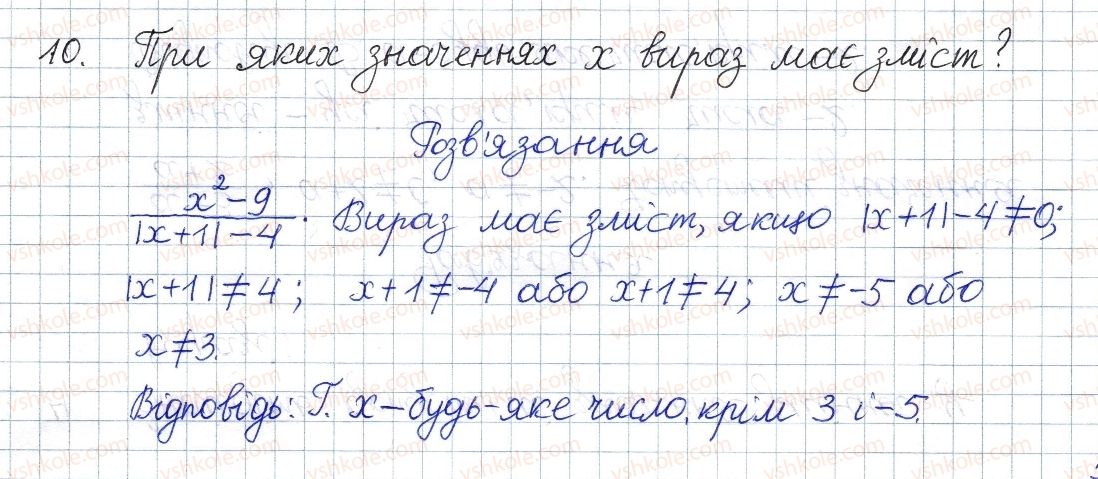 10. При яких значеннях x вираз має зміст?
Розв'язання
x²-9 / |x+1|-4. Вираз має зміст, якщо |x+1|-4≠0;
|x+1|≠4; x+1≠-4 або x+1≠4; x≠-5 або
x≠3.
Відповідь: Г. x – будь-яке число, крім 3 і -5.